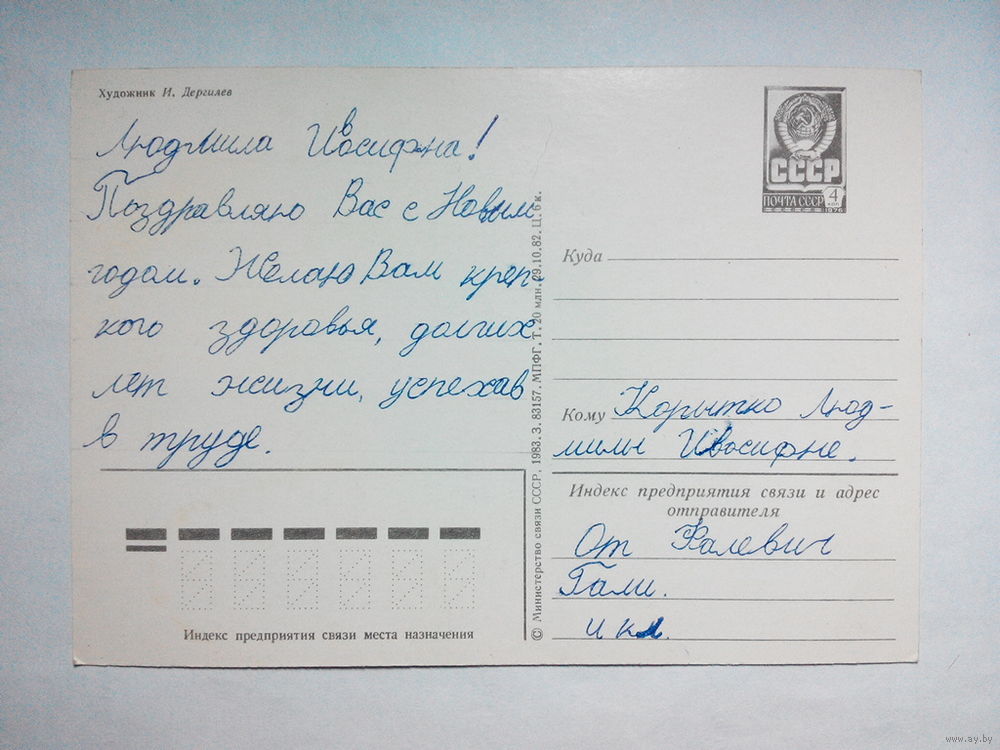 Художник И. Дергилев
Людмила Ивосифна!
Поздравляю Вас с Новым
годом. Желаю Вам креп-
кого здоровья, долгих
лет жизни, успехав
в труде.
Индекс предприятия связи места назначения
© Министерство связи СССР, 1983. З. 83157. МПФГ. Т. 20 млн. 29.10.82. Ц. 6 к.
СССР
ПОЧТА СССР 4 коп
1976
Куда
Кому Корытко Люд-
милы Ивосифне.
Индекс предприятия связи и адрес
отправителя
От Фалевич
Гали.
и кл.
www.ay.by